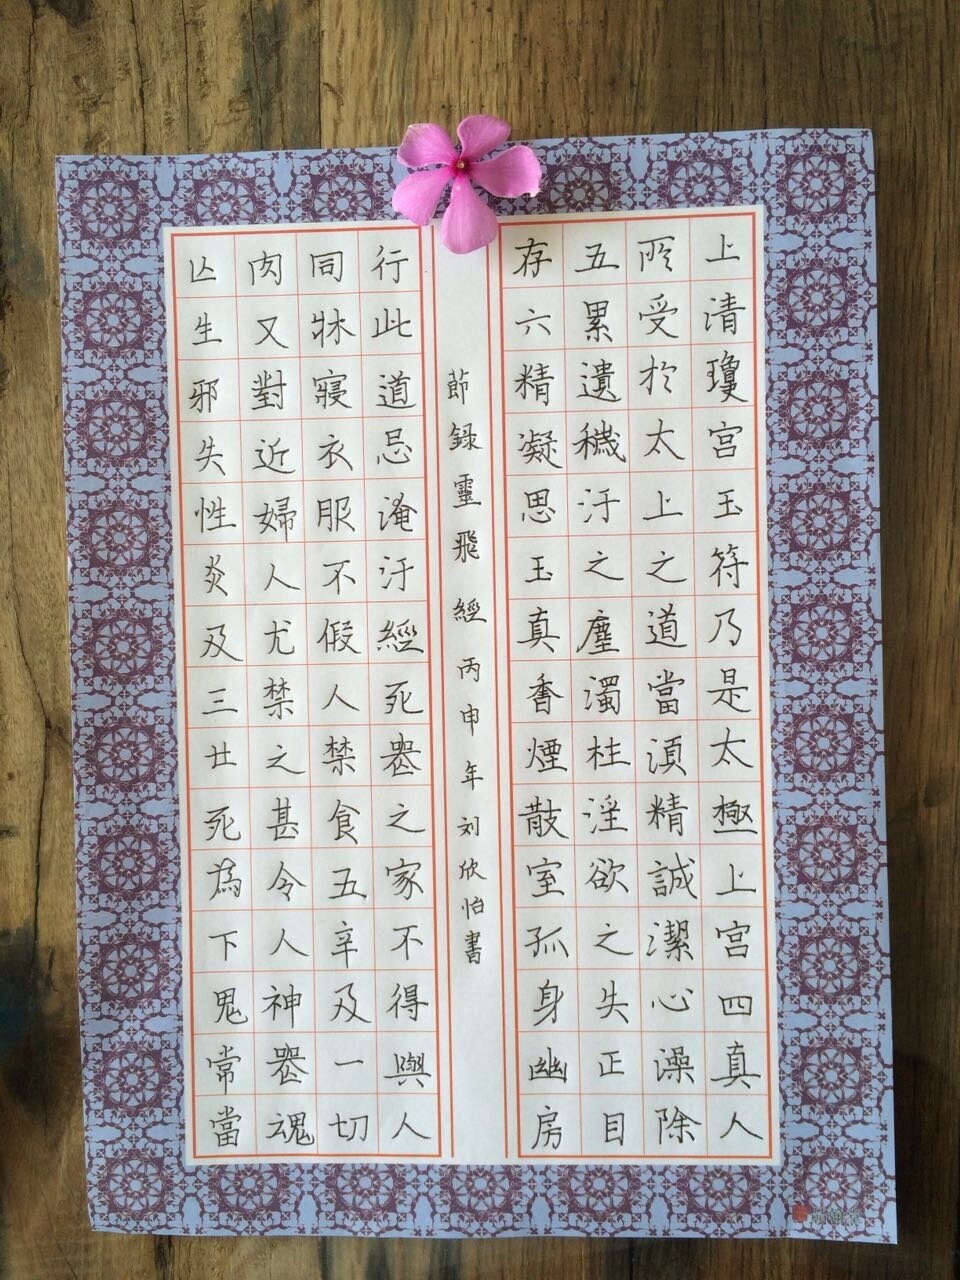 上清瓊宮玉符乃是太極上宮四真人
所受於太上之道當須精誠潔心澡除
五累遺穢汙之塵濁杜淫欲之失正目
存六精凝思玉真香煙散室孤身幽房
莭録靈飛經 丙申年刘欣怡書
行此道忌淹汙經死喪之家不得與人
同牀寢衣服不假人禁食五辛及一切
肉又對近婦人尤禁之甚令人神喪魂
亾生邪失性災及三世死為下鬼常當